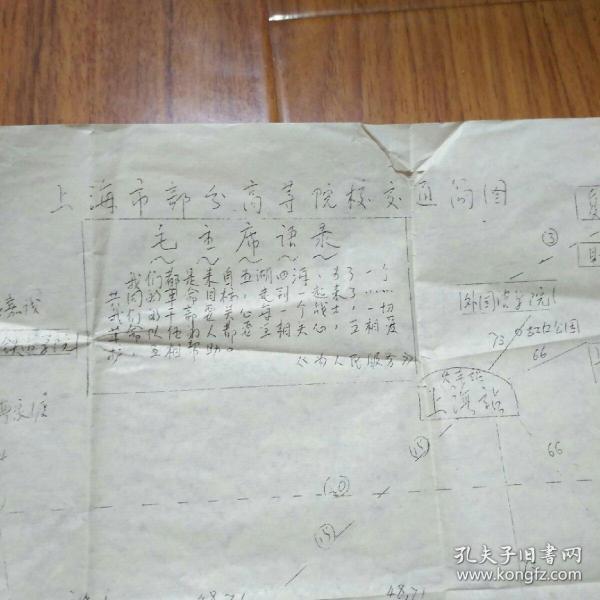 上海市部分高等院校交通简图
毛主席语录
我们都是来自五湖四海，为了一个
共同的革命目标，走到一起来了……
我们的干部要关心每一个战士，一切
革命队伍的人都要互相关心，互相爱
护，互相帮助。
《为人民服务》
③
外国语学院
73
虹口公园
66
火车站
上海站
⑮
66
⑮
48,71
48,71
孔夫子旧书网
www.kongfz.com